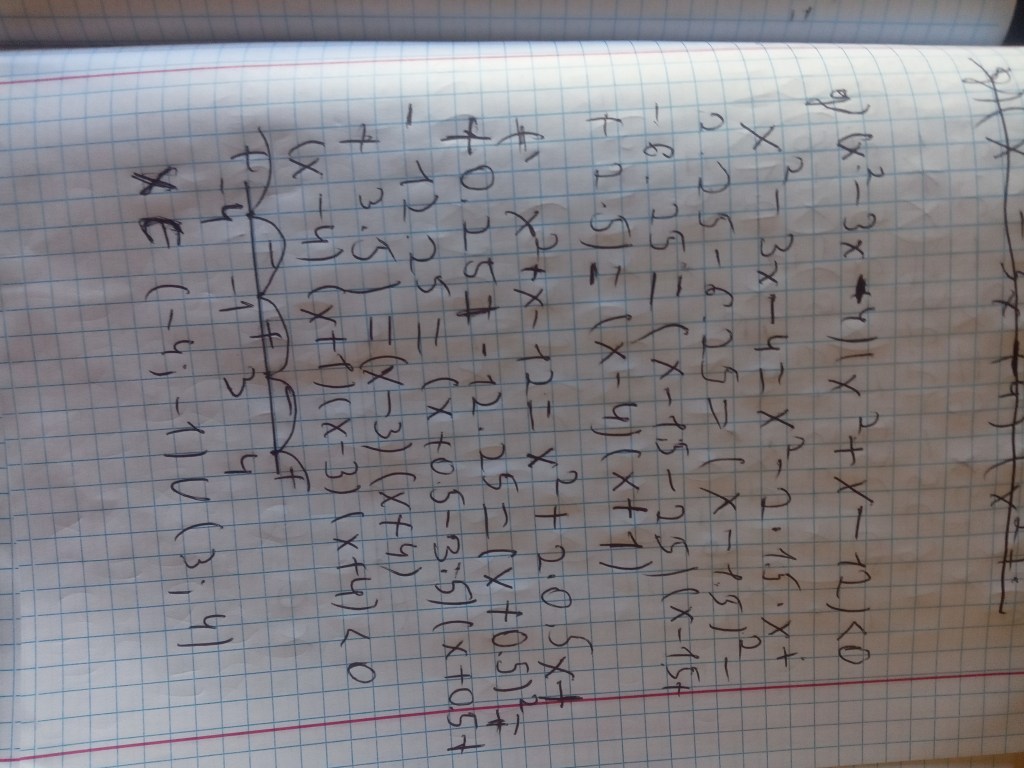 g) (x² - 3x - 4)(x² + x - 12) < 0
x² - 3x - 4 = x² - 2 · 1.5 · x +
2.25 - 6.25 = (x - 1.5)² -
- 6.25 = (x - 1.5 - 2.5)(x - 1.5 +
+ 2.5) = (x - 4)(x + 1)
x² + x - 12 = x² + 2 · 0.5x +
+ 0.25 - 12.25 = (x + 0.5)² -
- 12.25 = (x + 0.5 - 3.5)(x + 0.5 +
+ 3.5) = (x - 3)(x + 4)
(x - 4)(x + 1)(x - 3)(x + 4) < 0
+ - + - +
-4 -1 3 4
x ∈ (-4; -1) ∪ (3; 4)